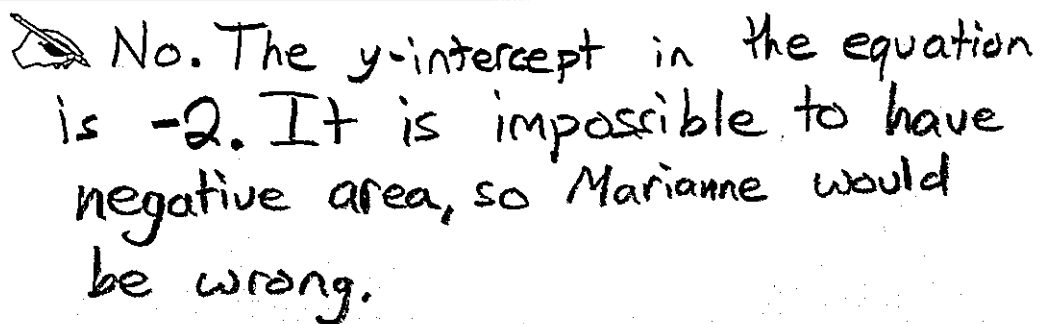 No. The y-intercept in the equation
is -2. It is impossible to have
negative area, so Marianne would
be wrong.